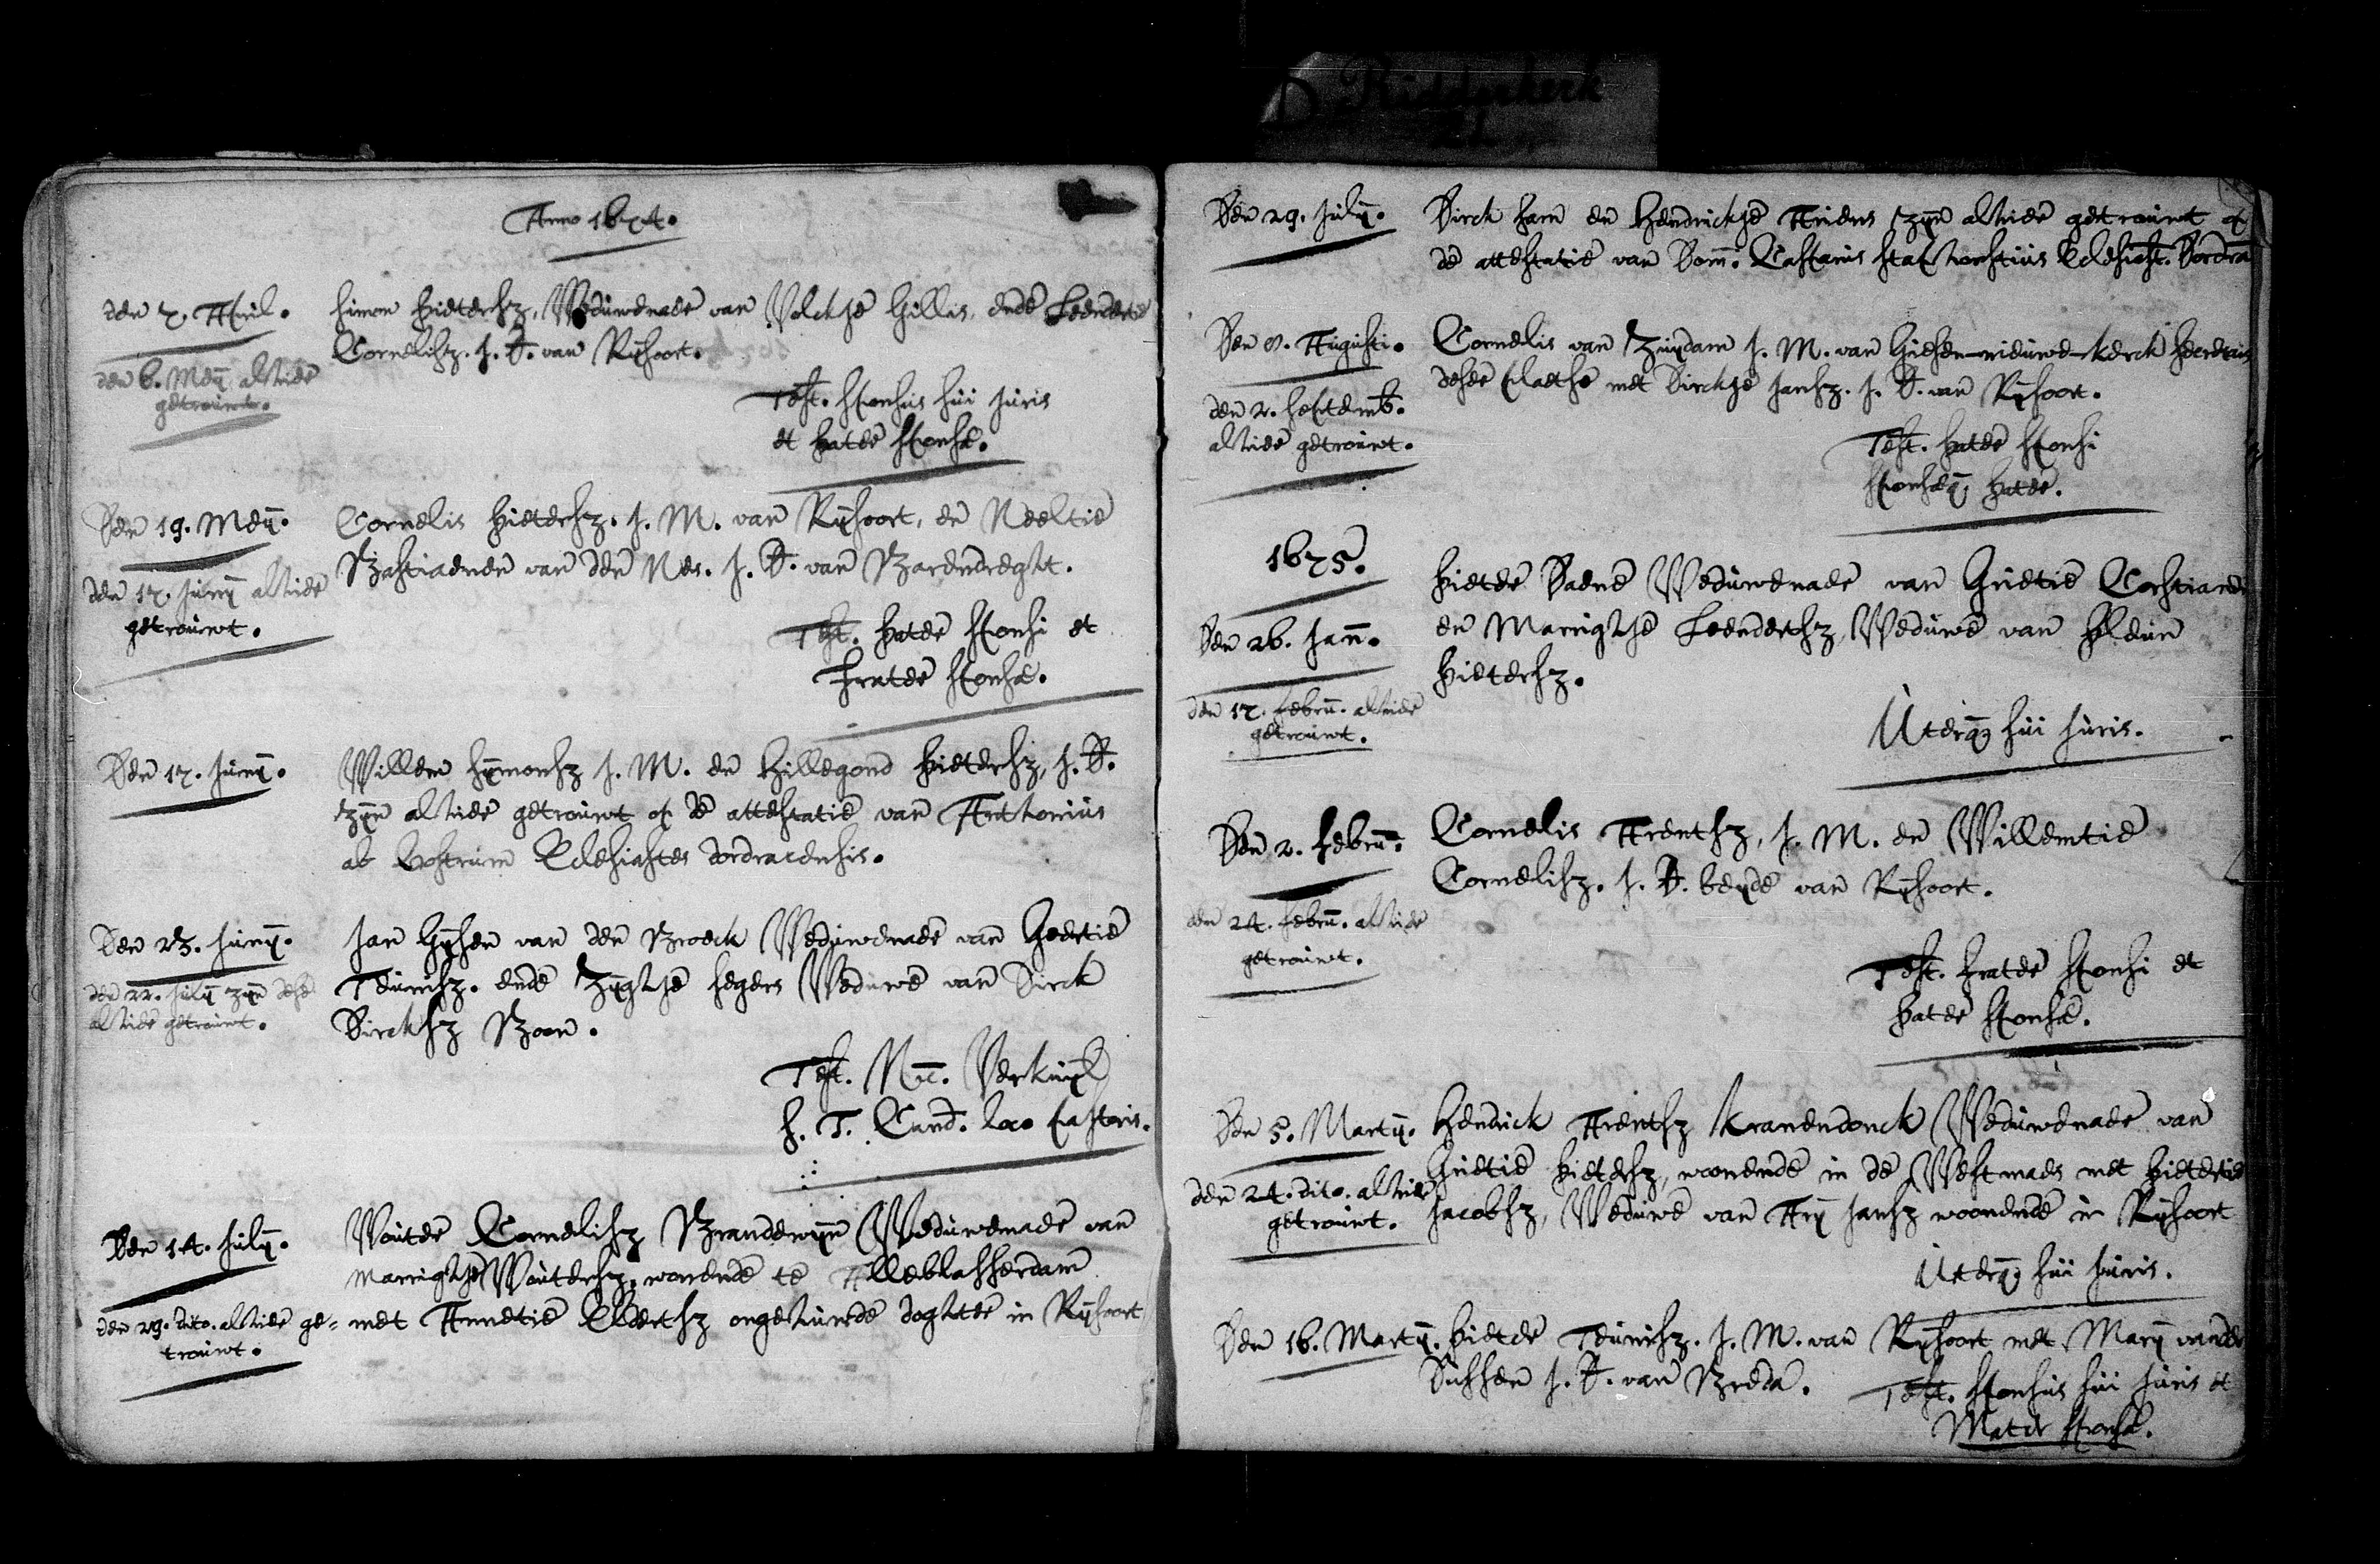 D. Ridderkerk
21
Anno 1674.
den 7. April.
Simon Pietersz, Weduwenaer van Volckje Gillis, ende Leendertie
Cornelisz. J. D. van Rijsoort.
den 6. Meij alhier
getrouwt.
Test. sponsus sui juris
et pater sponsæ.
Den 19. Meij.
Cornelis Pietersz. J. M. van Rijsoort, en Neeltie
Bastiaenen van den Nes. J. D. van Barendreght.
den 17. Junij alhier
getrouwt.
Test. Pater sponsi et
Frater sponsæ.
Den 17. Junij.
Willem Sijmonsz J. M. en Hillegond Pietersz, J. D.
zijn alhier getrouwt op de attestatie van Anthonius
ab Oostrum Eclesiastes dordracensis.
Den 23. Junij.
Jan Gijsen van den Broeck Weduwenaer van Geertie
Teunisz. ende Zijghje Segers Weduwe van Dirck
Dircksz Boon.
den 22. Julij zijn dese
alhier getrouwt.
Test. Nic. Verkuijl
S. T. Cand. loco pastoris.
Den 14. Julij.
Wouter Cornelisz Brandewijn Weduwenaer van
Marrighje Woutersz, wonende te Alleblasserdam
met Annetie Eldertsz ongehuwde doghter in Rijsoort
den 29. dito. alhier ge-
trouwt.
Den 29. Julij.
Dirck Ham en Hendrickje Ariens zijn alhier getrouwt op
de attestatie van Dom. Caspanus Eclesiast. Dordra
Den 8. Augusti.
Cornelis van Zuydam J. M. van Giesen-nieuwe-kerck
deser plaetse met Dirckje Jansz. J. D. van Rijsoort.
den 2. Septemb.
alhier getrouwt.
Test. Pater sponsi
sponsæq; Pater.
1675.
Den 26. Jann.
Pieter Daene Weduwenaer van Grietie Corstiaens
en Marrighje Leendertsz, Weduwe van Pleun
Pietersz.
den 17. Febru. alhier
getrouwt.
Uterq; sui juris.
Den 2. Febru.
Cornelis Arentsz, J. M. en Willemtie
Cornelisz. J. D. beyde van Rijsoort.
den 24. Febru. alhier
getrouwt.
Test. Frater sponsi et
Pater sponsæ.
Den 5. Martij.
Hendrick Arentsz Kranendonck Weduwenaer van
Grietie Pietersz, woonende in de Westmaes met Pietertie
Jacobsz, Weduwe van Arij Jansz woonende in Rijsoort
den 24. dito. alhier
getrouwt.
Uterq; sui juris.
Den 16. Martij.
Pieter Teunisz. J. M. van Rijsoort met Marij vander
Dussen J. D. van Breda.
Test. sponsus sui juris et
Mater sponsæ.